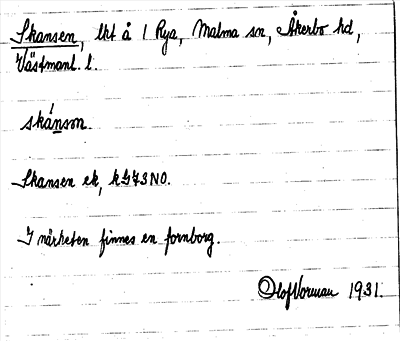 Skansen, lht å 1 Rya, Malma sn, Åkerbo hd,
Västmanl. l.
skánsǝn.
Skansen ek, k573NO.
I närheten finnes en fornborg.
Olof Norman 1931.